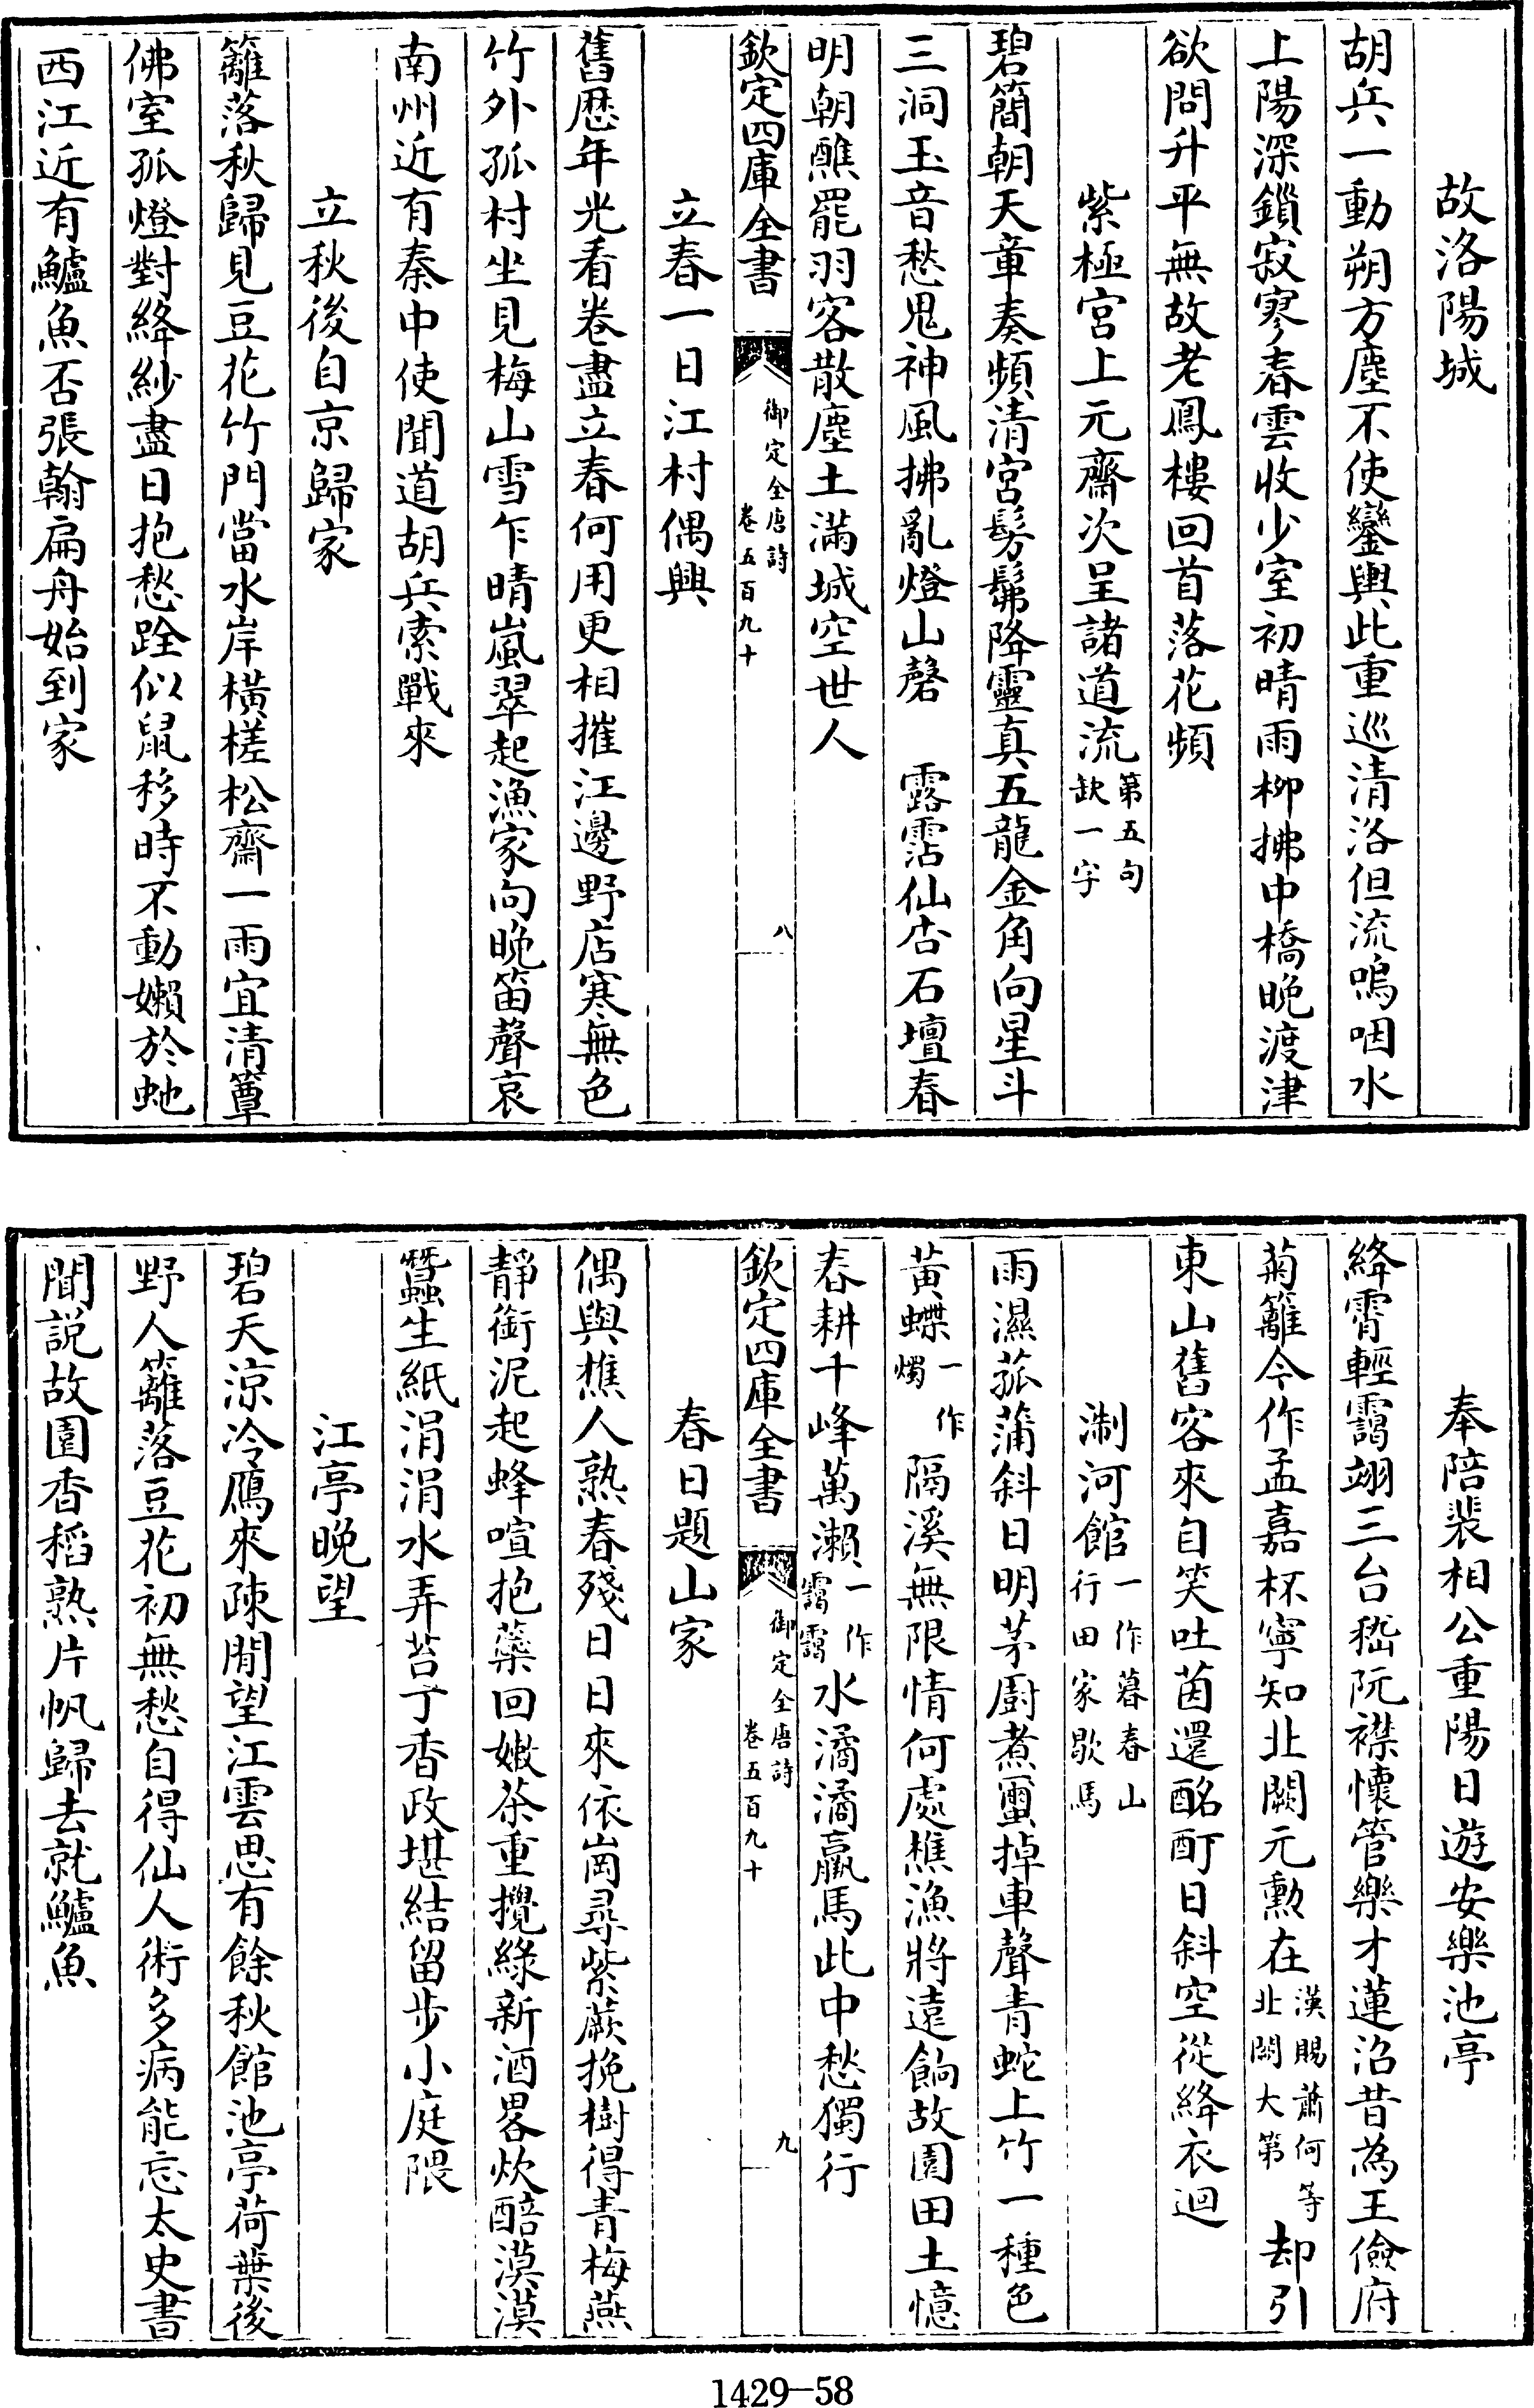 故洛陽城
胡兵一動朔方塵不使鑾輿此重巡清洛但流嗚咽水
上陽深鎻寂寥春雲收少室初晴雨柳拂中橋晚渡津
欲問升平無故老鳳樓回首落花頻
紫極宮上元齋次呈諸道流第五句缺一字
碧簡朝天章奏頻清宮髣髴降靈真五龍金角向星斗
三洞玉音愁鬼神風拂亂燈山磬 露霑仙杏石壇春
明朝醮罷羽客散塵土滿城空世人
欽定四庫全書 御定全唐詩卷五百九十 八
立春一日江村偶興
舊歴年光看卷盡立春何用更相摧江邊野店寒無色
竹外孤村坐見梅山雪乍晴嵐翠起漁家向晚笛聲哀
南州近有秦中使聞道胡兵索戰來
立秋後自京歸家
籬落秋歸見豆花竹門當水岸橫槎松齋一雨宜清簟
佛室孤燈對絳紗盡日抱愁跧似鼠移時不動嬾於虵
西江近有鱸魚否張翰扁舟始到家
奉陪裴相公重陽日遊安樂池亭
絳霄輕靄翊三台嵇阮襟懷管樂才蓮沼昔為王儉府
菊籬今作孟嘉杯寧知北闕元勲在漢賜蕭何等北闕大第却引
東山舊客來自笑吐茵還酩酊日斜空從絳衣迴
淛河館一作暮春山行田家歇馬
雨濕菰蒲斜日明茅廚煮蠒掉車聲青蛇上竹一種色
黃蝶一作燭隔溪無限情何處樵漁將遠餉故園田土憶
春耕千峰萬瀨一作靄靄水潏潏羸馬此中愁獨行
欽定四庫全書 御定全唐詩卷五百九十 九
春日題山家
偶與樵人熟春殘日日來依崗尋紫蕨挽樹得青梅燕
靜銜泥起蜂喧抱蘂回嫩茶重攪綠新酒畧炊醅漠漠
蠶生紙涓涓水弄苔丁香政堪結留步小庭隈
江亭晚望
碧天涼冷鴈來疎閒望江雲思有餘秋館池亭荷葉後
野人籬落豆花初無愁自得仙人術多病能忘太史書
聞說故園香稻熟片帆歸去就鱸魚
1429-58